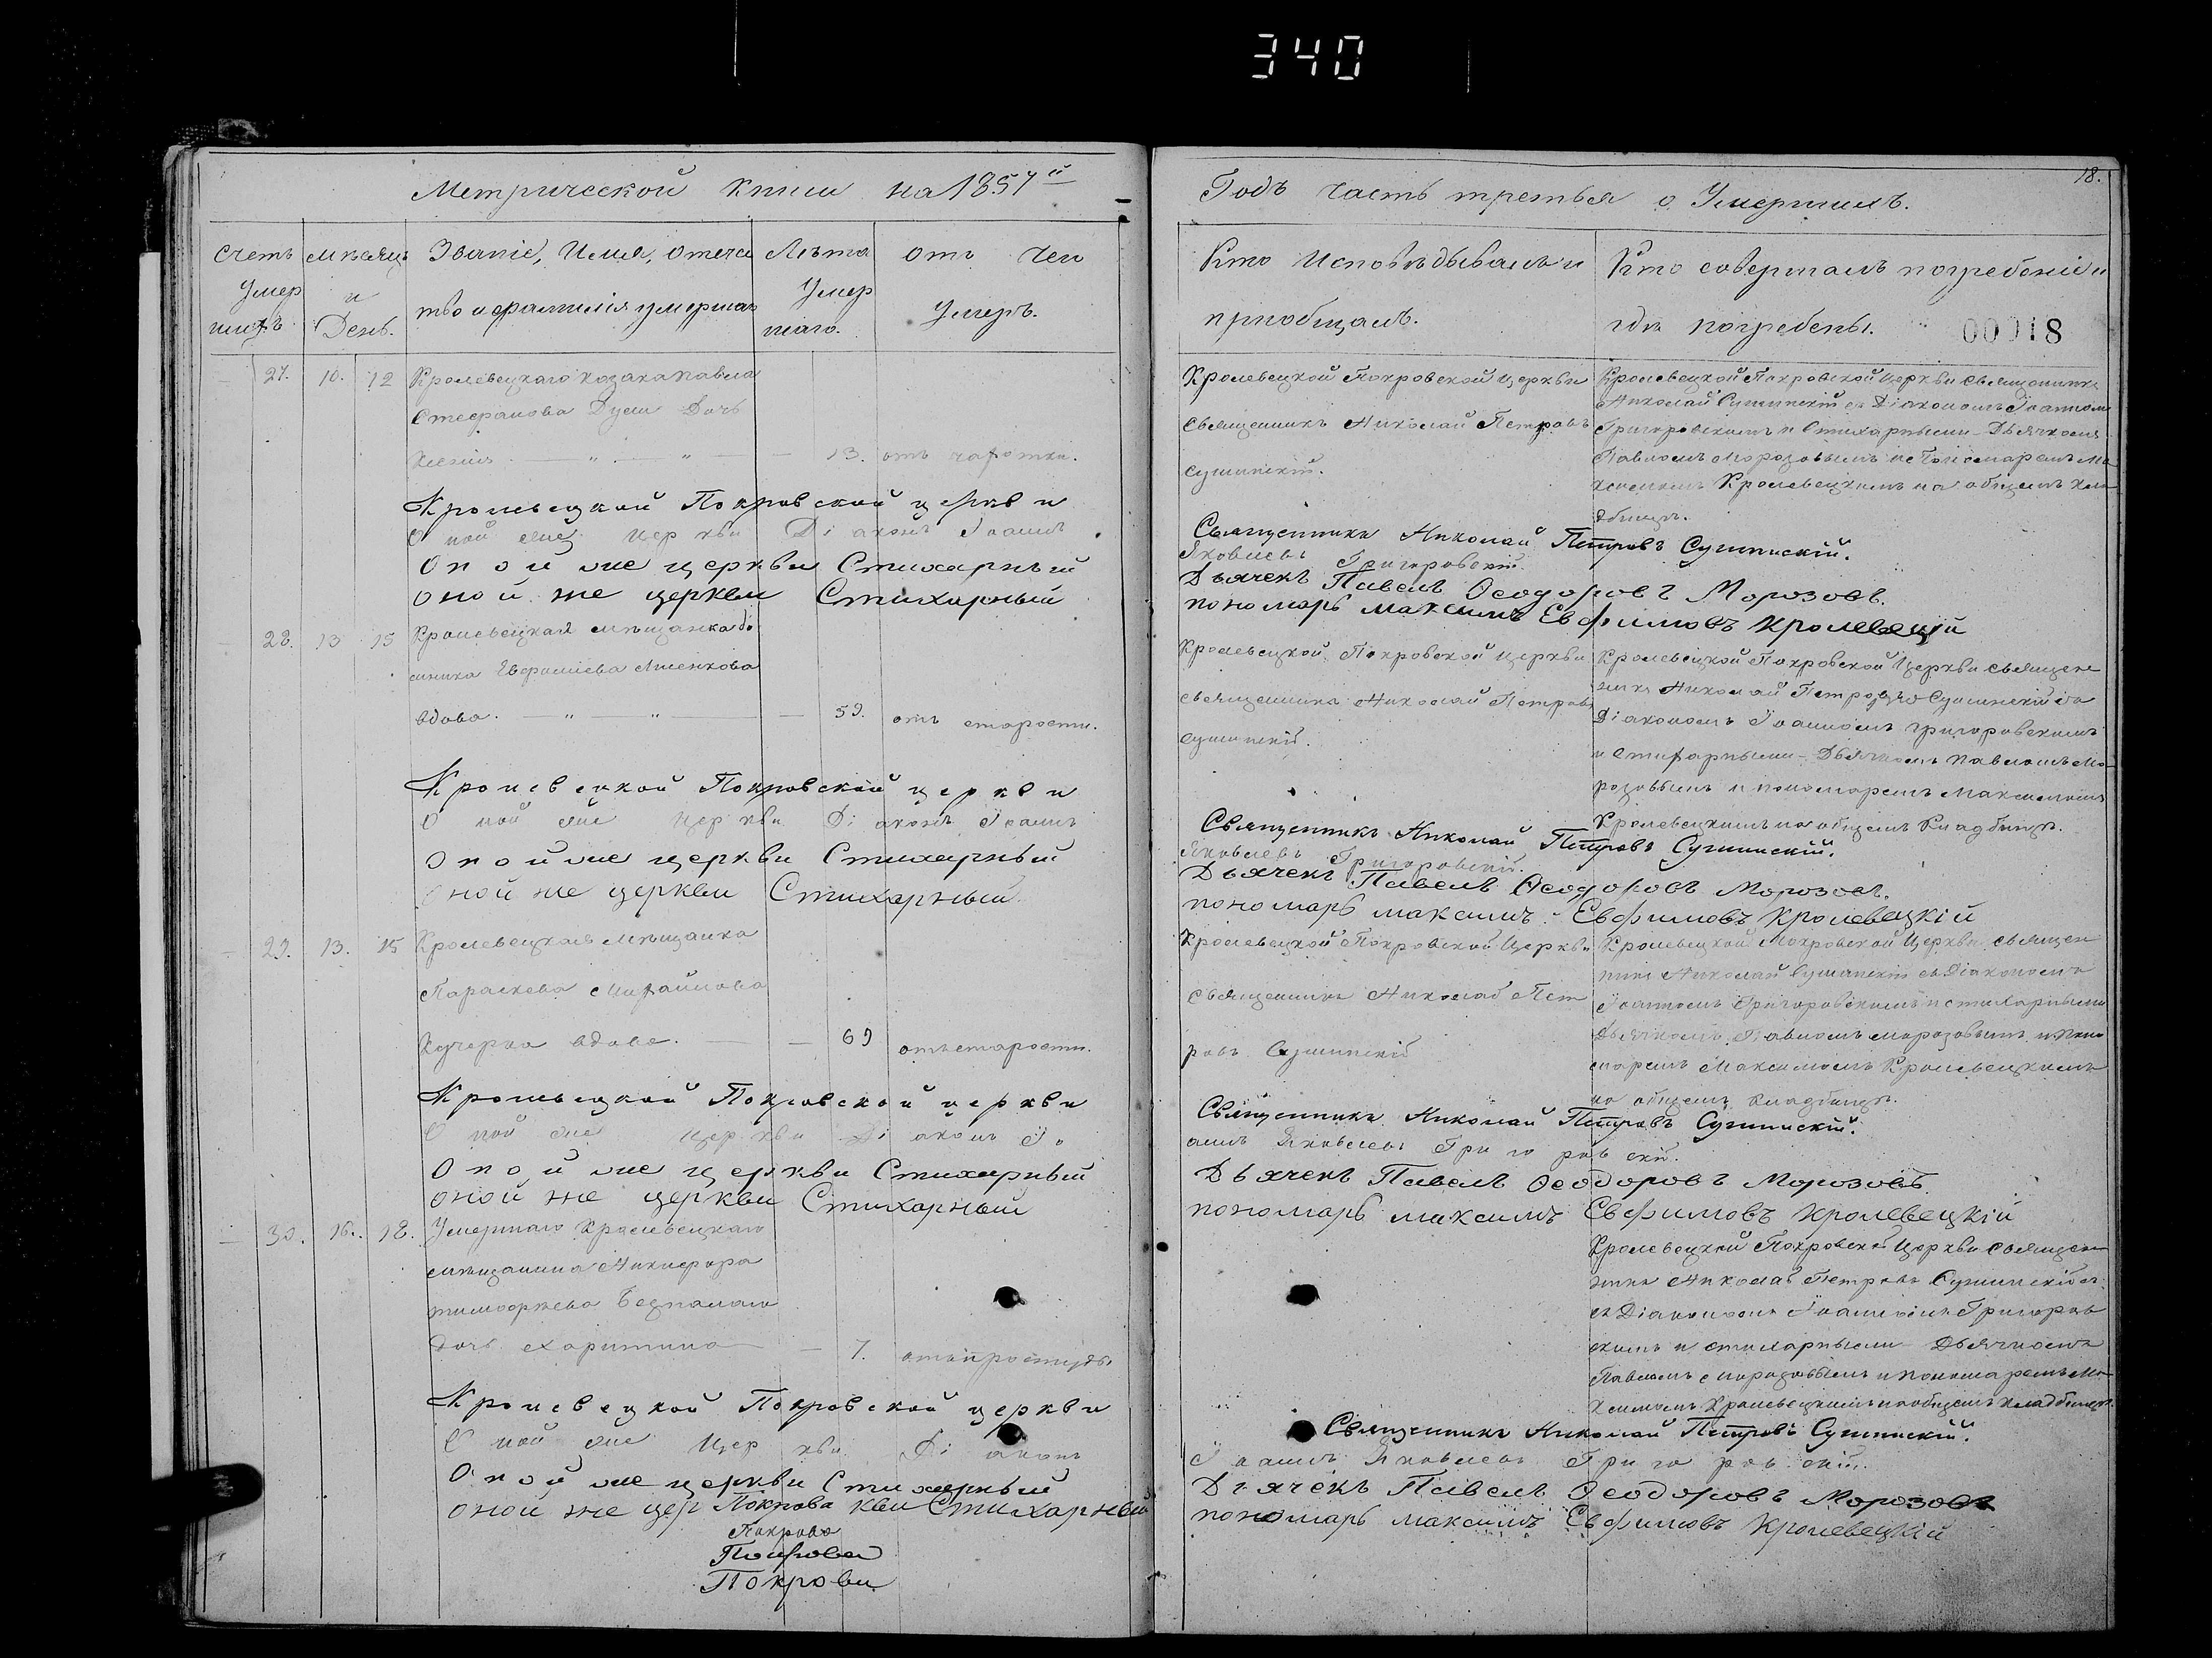 340
Метрической книги на 1857й
Счетъ Умер шихъ.
Мѣсяцъ и День.
Званіе, Имя, Отече
ство и фамилія умершаго
Лѣта Умер шаго.
Отъ чего Умеръ.
27. 10. 12 Кролевецкаго козака Павла
Стефанова Дочь
13. отъ чахотки.
Кролевецкой Покровской церкви
Оной же Церкви Діаконъ Іоаннъ
Оной же церкви Стихарный
Оной же церкви Стихарный
28. 13 15 Кролевецкая мѣщанка
вдова. 59. отъ старости.
Кролевецкой Покровской церкви
Оной же Церкви Діаконъ Іоаннъ
Оной же церкви Стихарный
Оной же церкви Стихарный
29. 13. 15 Кролевецкая Мѣщанка
Параскева Михайлова
вдова. 69 отъ старости.
Кролевецкой Покровской церкви
Оной же Церкви Діаконъ Іо
Оной же церкви Стихарный
Оной же церкви Стихарный
30. 16. 18. Умершаго Кролевецкаго
мѣщанина Никифора
Тимофеева
дочь Харитина 7. отъ простуды
Кролевецкой Покровской церкви
Оной же Церкви Діаконъ
Оной же церкви Стихарный
Оной же цер Покрова кви Стихарный
Покрова
Покрова
Покрови
18.
Годъ часть третья о Умершихъ.
Кто Исповѣдывалъ и
приобщалъ.
Кто совершалъ погребеніе и
гдѣ погребены.
00018
Кролевецкой Покровской Церкви
Священникъ Николай Петровъ
Сушинскій.
Кролевецкой Покровской Церкви Священникъ
Николай Сушинскій съ Діакономъ Іоанномъ
Григоровскимъ и Стихарными Дьячкомъ
Павломъ Морозовымъ и Пономаремъ Ма
ксимомъ Кролевецкимъ на общемъ кла
дбищѣ.
Священникъ Николай Петровъ Сушинскій.
Яковлевъ Григоровскій.
Дьячекъ Павелъ Ѳеодоровъ Морозовъ.
пономарь Максимъ Евфимовъ Кролевецкій
Кролевецкой Покровской Церкви
Священникъ Николай Петровъ
Сушинскій.
Кролевецкой Покровской Церкви Священ
никъ Николай Петровъ Сушинскій съ
Діакономъ Іоанномъ Григоровскимъ
и Стихарными Дьячкомъ Павломъ Мо
розовымъ и пономаремъ Максимомъ
Кролевецкимъ на общемъ Кладбищѣ.
Священникъ Николай Петровъ Сушинскій.
Яковлевъ Григоровскій.
Дьячекъ Павелъ Ѳеодоровъ Морозовъ.
пономарь Максимъ Евфимовъ Кролевецкій
Кролевецкой Покровской Церкви
Священникъ Николай Пет
ровъ Сушинскій
Кролевецкой Покровской Церкви Священ
никъ Николай Сушинскій съ Діакономъ
Іоанномъ Григоровскимъ и стихарными
Дьячкомъ Павломъ Морозовымъ и Поно
маремъ Максимомъ Кролевецкимъ
на общемъ Кладбищѣ.
Священникъ Николай Петровъ Сушинскій.
аннъ Яковлевъ Григоровскій.
Дьячекъ Павелъ Ѳеодоровъ Морозовъ
пономарь Максимъ Евфимовъ Кролевецкій
Кролевецкой Покровской Церкви Священ
никъ Николай Петровъ Сушинскій
съ Діакономъ Іоанномъ Григоров
скимъ и стихарными Дьячкомъ
Павломъ Морозовымъ и пономаремъ Ма
ксимомъ Кролевецкимъ на общемъ кладбищѣ.
Священникъ Николай Петровъ Сушинскій.
Іоаннъ Яковлевъ Григоровскій.
Дьячекъ Павелъ Ѳеодоровъ Морозовъ
пономарь Максимъ Евфимовъ Кролевецкій